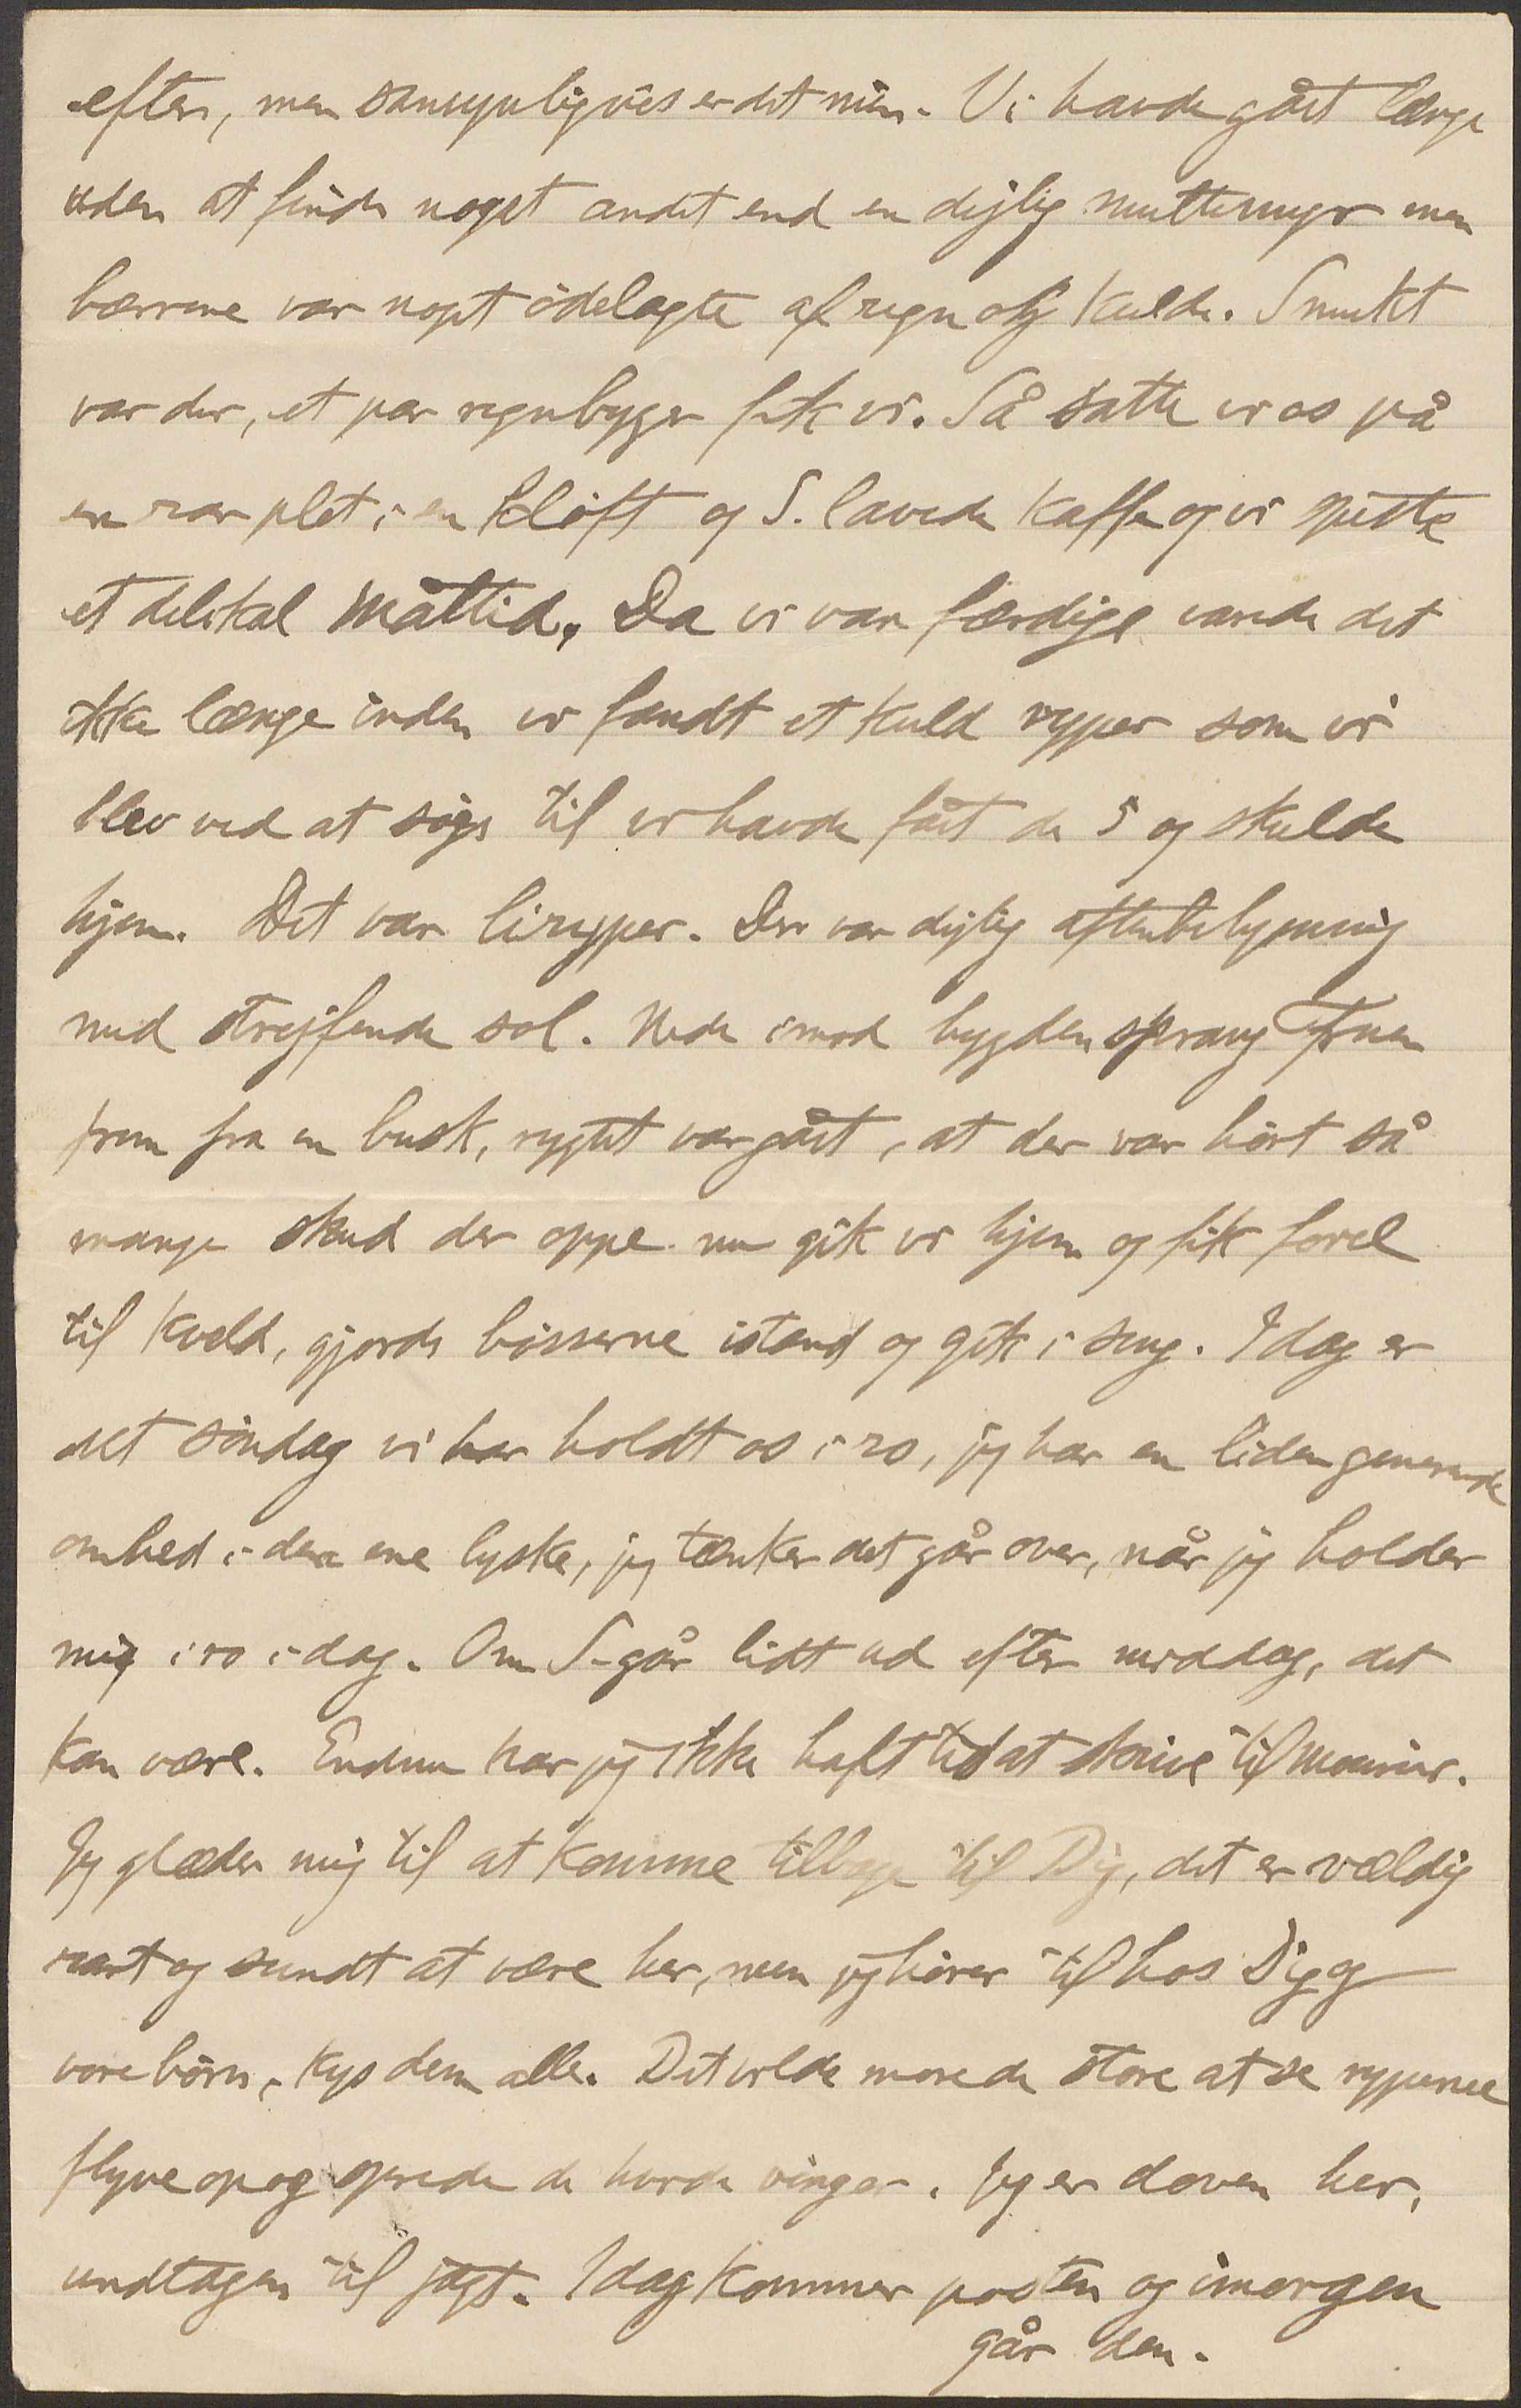 efter, men sansynligvis er det min. Vi havde gået længe
uden at finde noget andet end en dejlig multemyr men
bærrene var noget ödelagte af regn og kulde. Smukt
var der, et par regnbyger fik vi. Så satte vi os på
en rar plet i en klöft og S. lavede kaffe og vi spiste
et delikat måltid. Da vi var færdige varede det
ikke længe inden vi fandt et kuld ryper som vi
blev ved at søge til vi havde fåt de 5 og skulde
hjem. Det var liryper. Der var dejlig aftenbelysning
med strejfende sol. Nede imod bygden sprang
frem fra en busk, rygtet var gået, at der var hört så
mange skud der oppe. nu gik vi hjem og fik forel
til kveld, gjorde bösserne istand og gik i seng. Idag er
det söndag vi har holdt os i ro, jeg har en liden generende
ömhed i den ene lyske, jeg tænker det går over, når jeg holder
mig i ro idag. Om S. går lidt ud efter middag, det
kan være. Endnu har jeg ikke haft tid at skrive til
Jeg glæder mig til at komme tilbage til Dig, det er vældig
rart og sundt at være her, men jeg hörer til hos Dig og
vore börn, kys dem alle. Det vilde more de store at se ryperne
flyve op og sprede de hvide vinger. Jeg er doven her,
undtagen til jagt. Idag kommer posten og imorgen
går den.